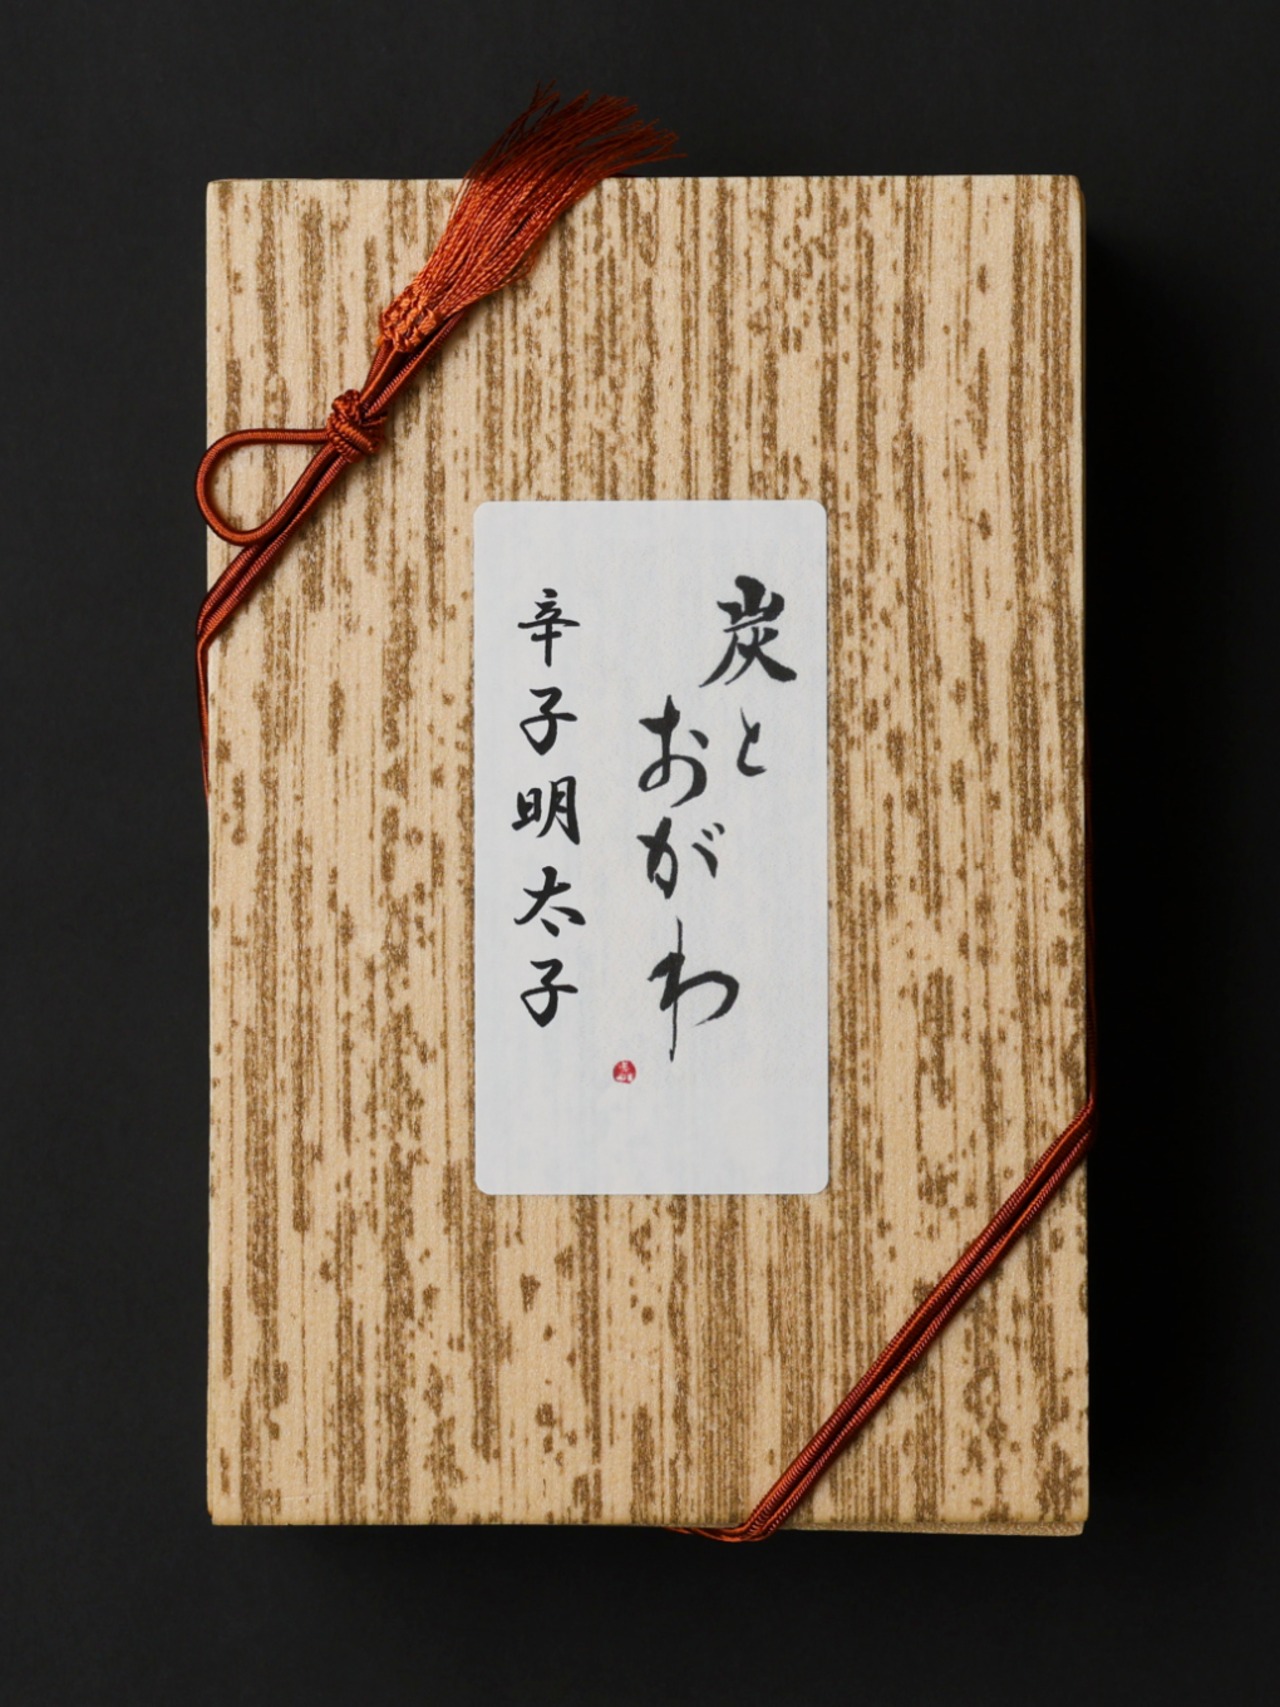 炭と
おがわ
辛子明太子